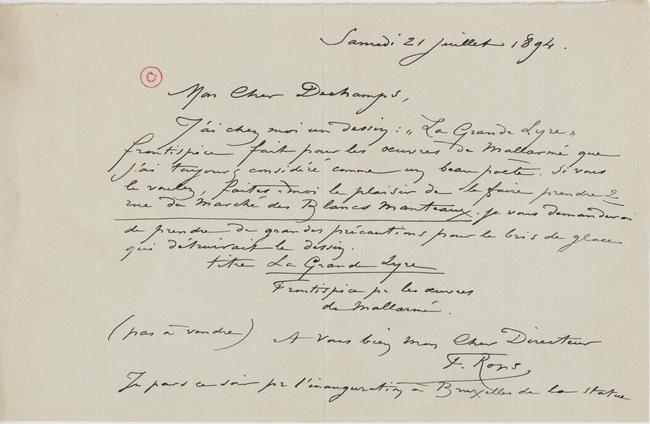 Samedi 21 juillet 1894.
Mon Cher Deschamps,
J'ai chez moi un dessin : „La Grande Lyre„
frontispice fait pour les œuvres de Mallarmé que
j'ai toujours considéré comme un beau poète. Si vous
le voulez, faites-moi le plaisir de le faire prendre 2
rue du Marché des Blancs Manteaux. je vous demanderai
de prendre de grandes précautions pour le bris de glace
qui détruirait le dessin.
titre La Grande Lyre
Frontispice pr les œuvres
de Mallarmé.
(pas à vendre)
A vous bien mon Cher Directeur
F. Rops
Je pars ce soir pr l'inauguration à Bruxelles de la statue